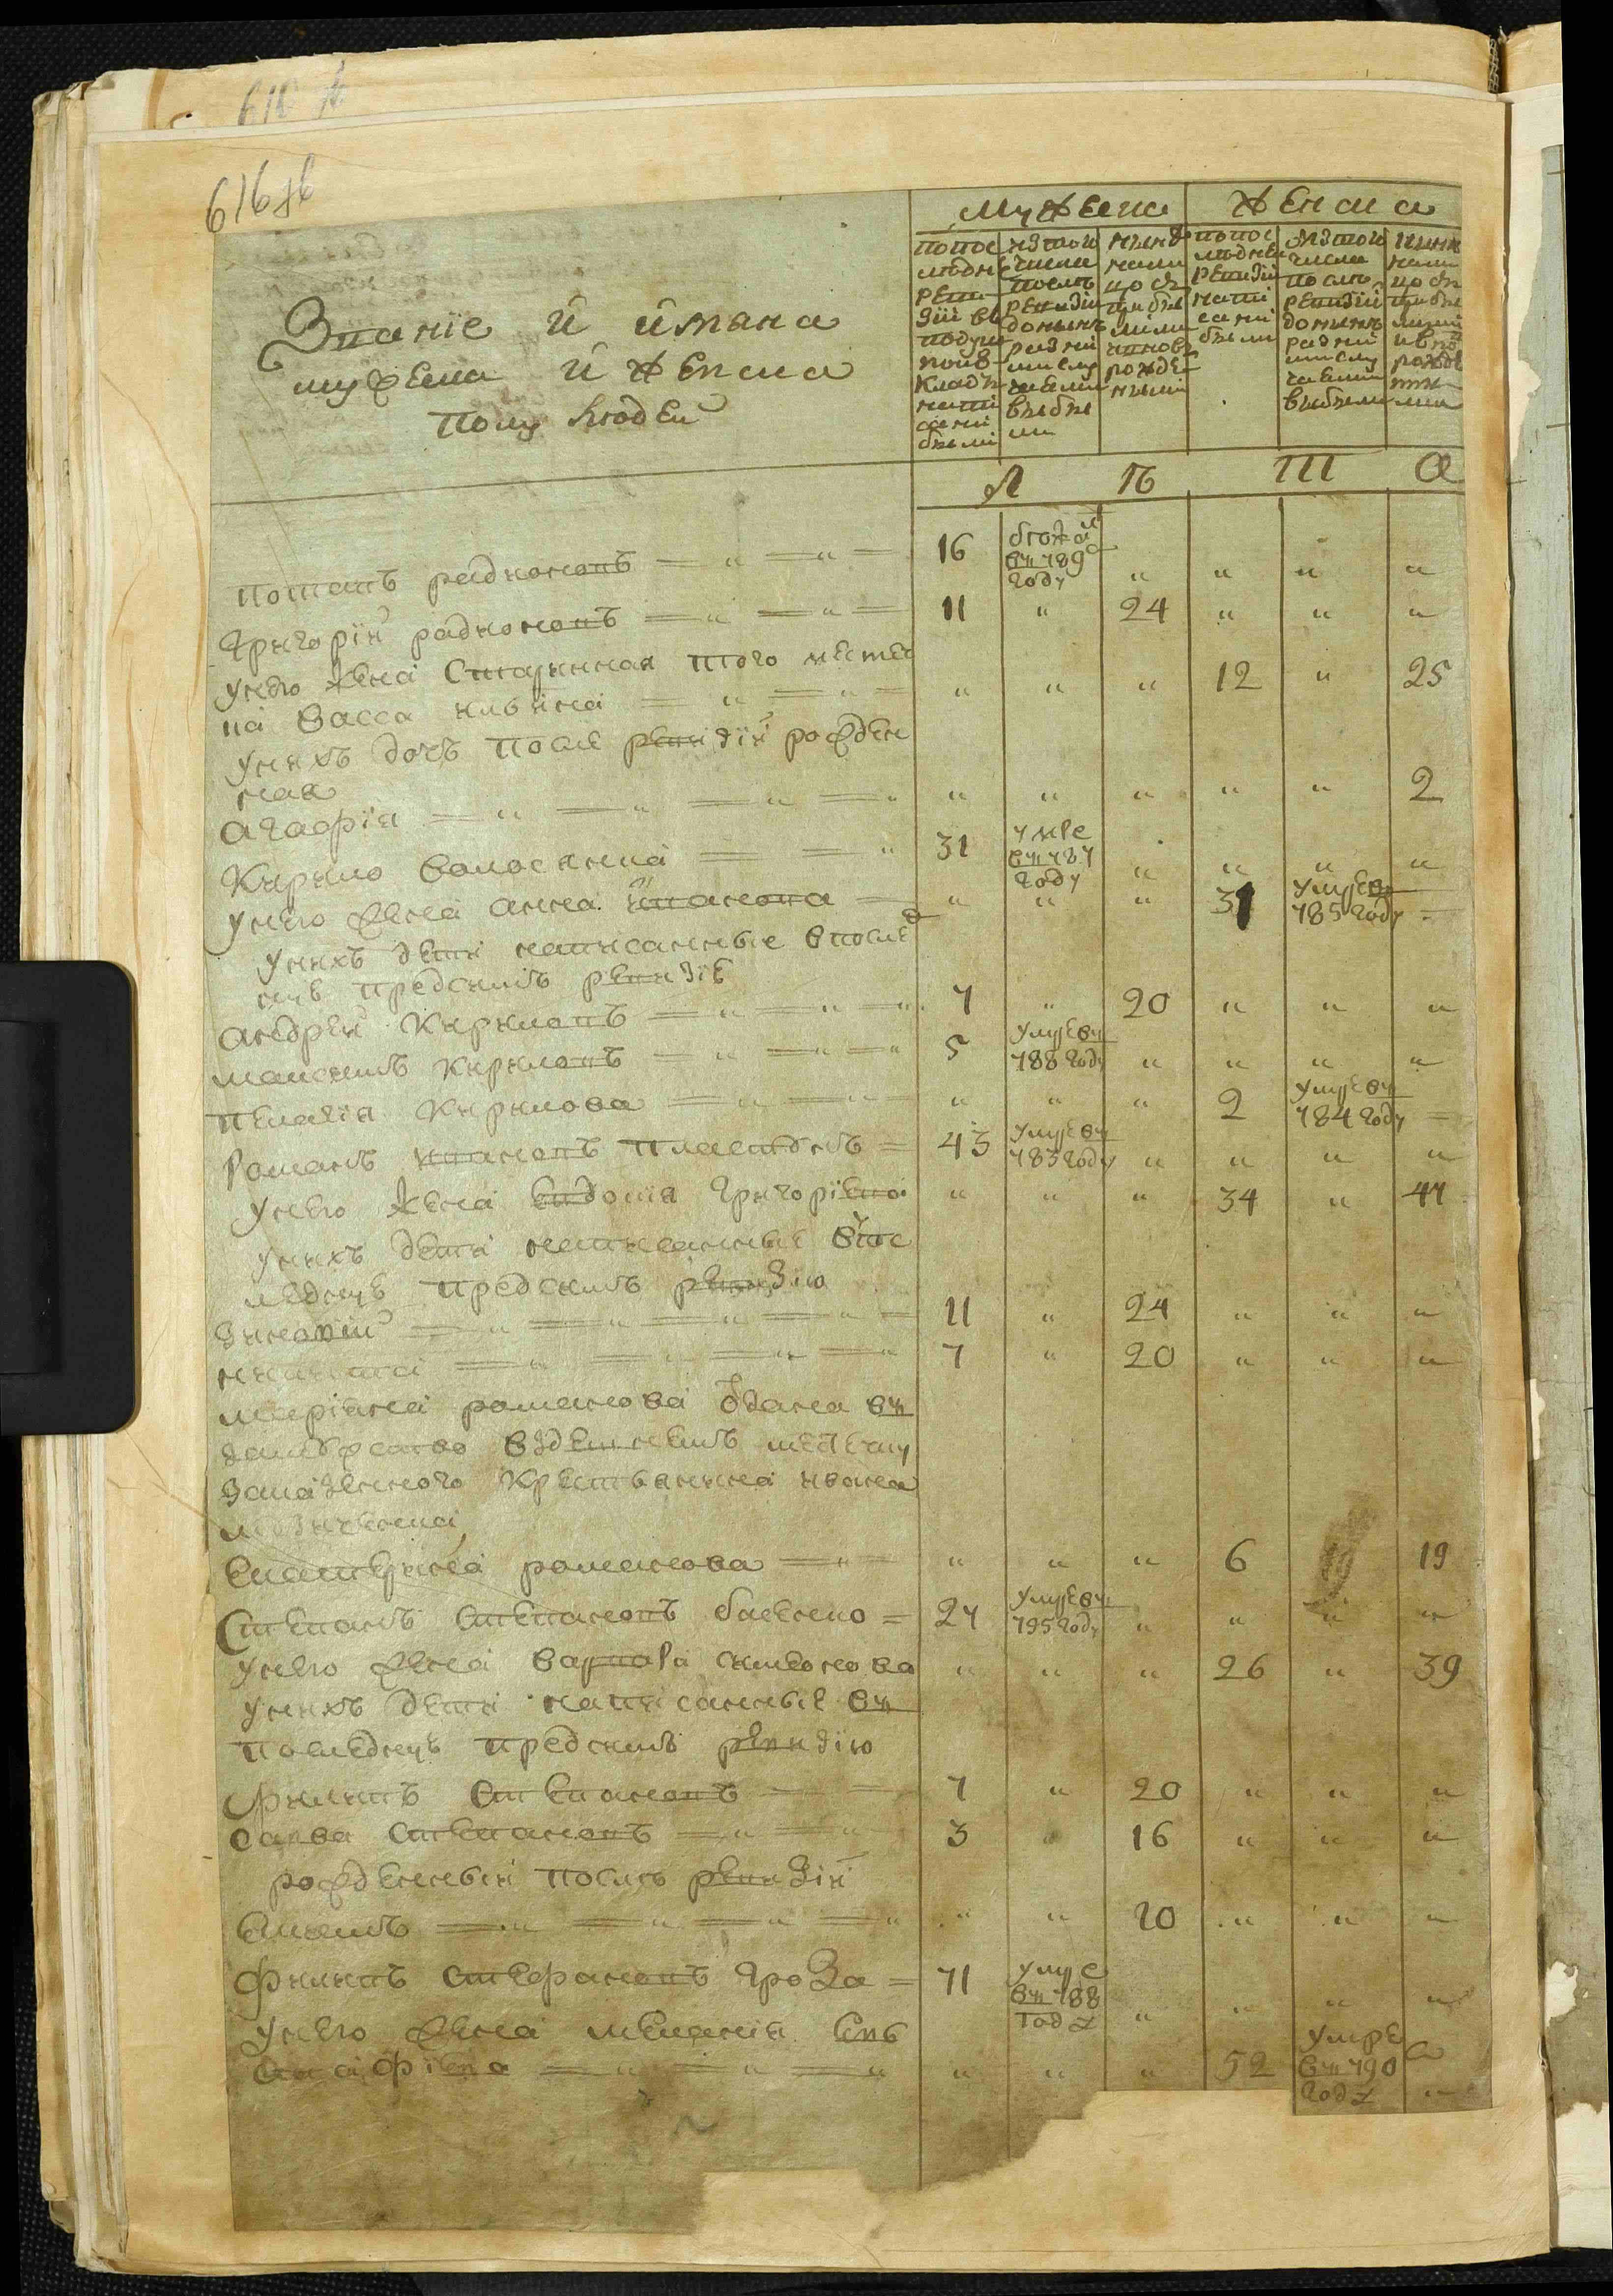 616 об
Звание и имяна
мужеска и женска
полу людей
мужеска
женска
по пос
ледне
реви
зии в
подуш
ном о
кладе
напи
саны
были
из того
числа
после
ревизии
до ныне
разны
ми слу
чаями
выбы
ли
ныне
нали
цо с
прибы
лыми
и новь
рожде
ными
по пос
ледней
ревизии
напи
саны
были
из того
числа
после
ревизии
до ныне
разны
ми слу
чаями
выбыли
ныне
нали
цо с
прибы
лыми
и вно
рожде
ны
ми
Л П Т А
Потапъ радионовъ 16 бежа в 789 году " " " "
Григорий радионовъ 11 " 24 " " "
у него жена Старинная того местеч
ка Васса ильина " " " 12 " 25
у нихъ дочь после ревизии рожден
ная
Агафия " " " " " 2
Кирило волосянка 31 умре в 787 году " " " "
у него жена анна иванова " " " 31 умре в 785 году
у нихъ дети написанные в послед
нуе пред симъ ревизие
андрей Кириловъ 7 " 20 " " "
максимъ Кириловъ 5 умре в 788 году " " " "
пелагия Кирилова " " " 2 умре в 784 году
Романъ ивановъ 43 умре в 783 году " " " "
у него жена Евдокия Григориева " " " 34 " 47
у нихъ дети написанные в пос
леднуе пред симъ ревизию
Зиновий 11 " 24 " " "
никита 7 " 20 " " "
мариана романова одана в
замужство в здешнемъ местечку
за казенного крестьянина ивана
Екатерина романова " " " 6 19
Степанъ Степановъ 27 умре в 795 году " " " "
у него жена варвара симеонова " " " 26 " 39
у нихъ дети написанные в
последнуе пред симъ ревизию
Филипъ Степановъ 7 " 20 " " "
Савва Степановъ 3 " 16 " " "
рожденный после ревизии
Екимъ " " 10 " " "
Филипъ Стефановъ гроза 71 умре в 788 году " " " "
у него жена мелания Ев
стафиева " " " 52 умре в 790 году "